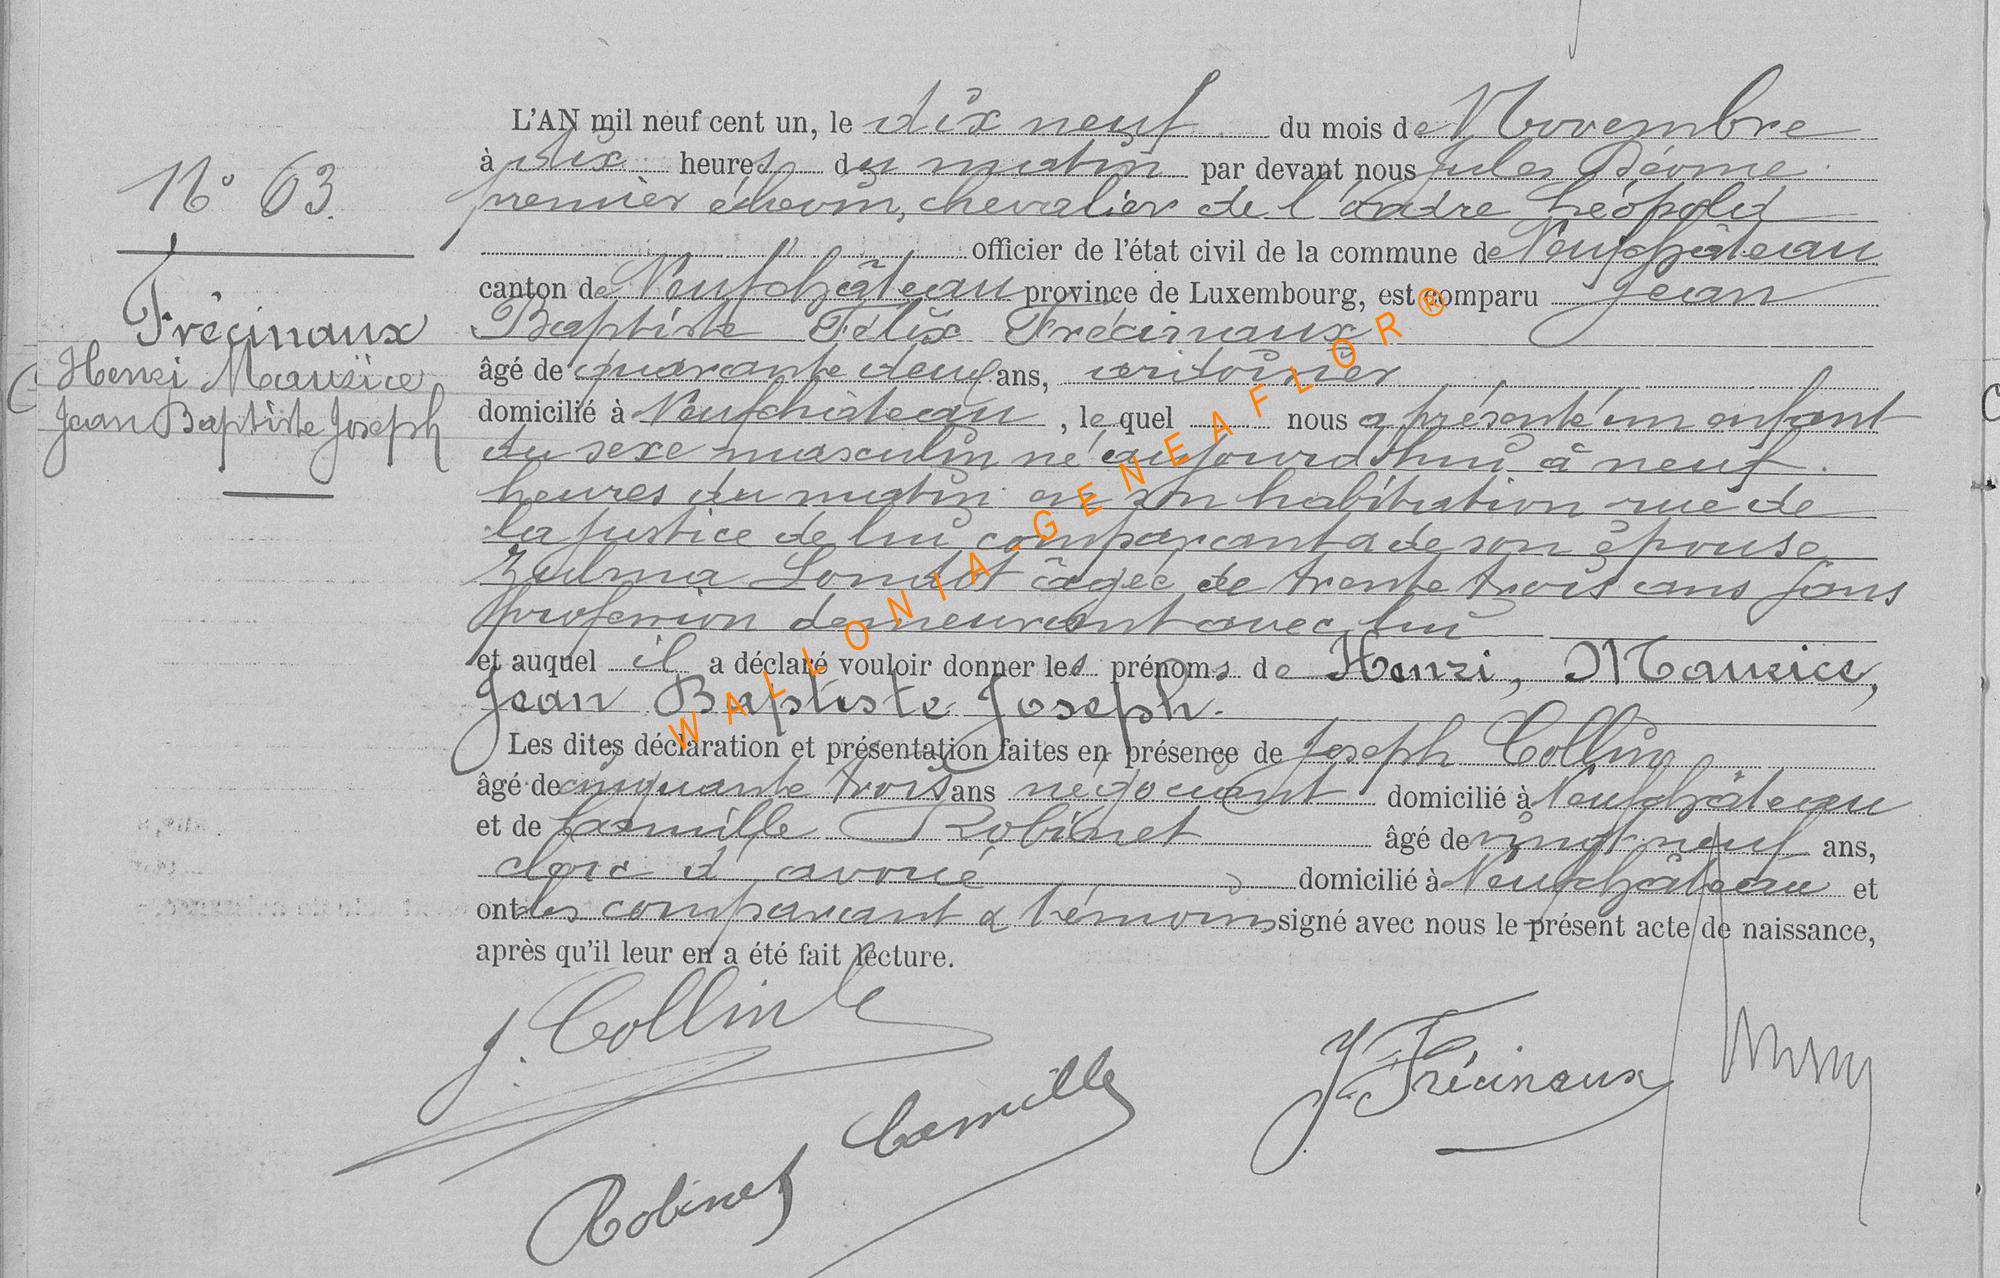 L'AN mil neuf cent un, le dix neuf du mois de Novembre
à dix heures du matin par devant nous Jules
premier échevin, chevalier de l'ordre Léopold
officier de l'état civil de la commune de Neufchâteau
canton de Neufchâteau province de Luxembourg, est comparu Jean
Baptiste Félix Frécinaux
âgé de quarante deux ans,
domicilié à Neufchâteau, le quel nous a présenté un enfant
du sexe masculin né aujourd'hui à neuf
heures du matin en son habitation rue de
la justice de lui comparant & de son épouse
Zulma Londot âgée de trente trois ans sans
profession demeurant avec lui
et auquel il a déclaré vouloir donner les prénoms de Henri, Maurice,
Jean Baptiste Joseph.
Les dites déclaration et présentation faites en présence de Joseph Collin
âgé de cinquante trois ans négociant domicilié à Neufchâteau
et de Camille Robinet âgé de vingt neuf ans,
clerc d'avoué domicilié à Neufchâteau et
ont les comparant & témoins signé avec nous le présent acte de naissance,
après qu'il leur en a été fait lecture.
N° 63.
Frécinaux
Henri Maurice
Jean Baptiste Joseph
J. Collin
Robinet Camille
J Frécinaux
WALLONIA.GENEAFLOR®